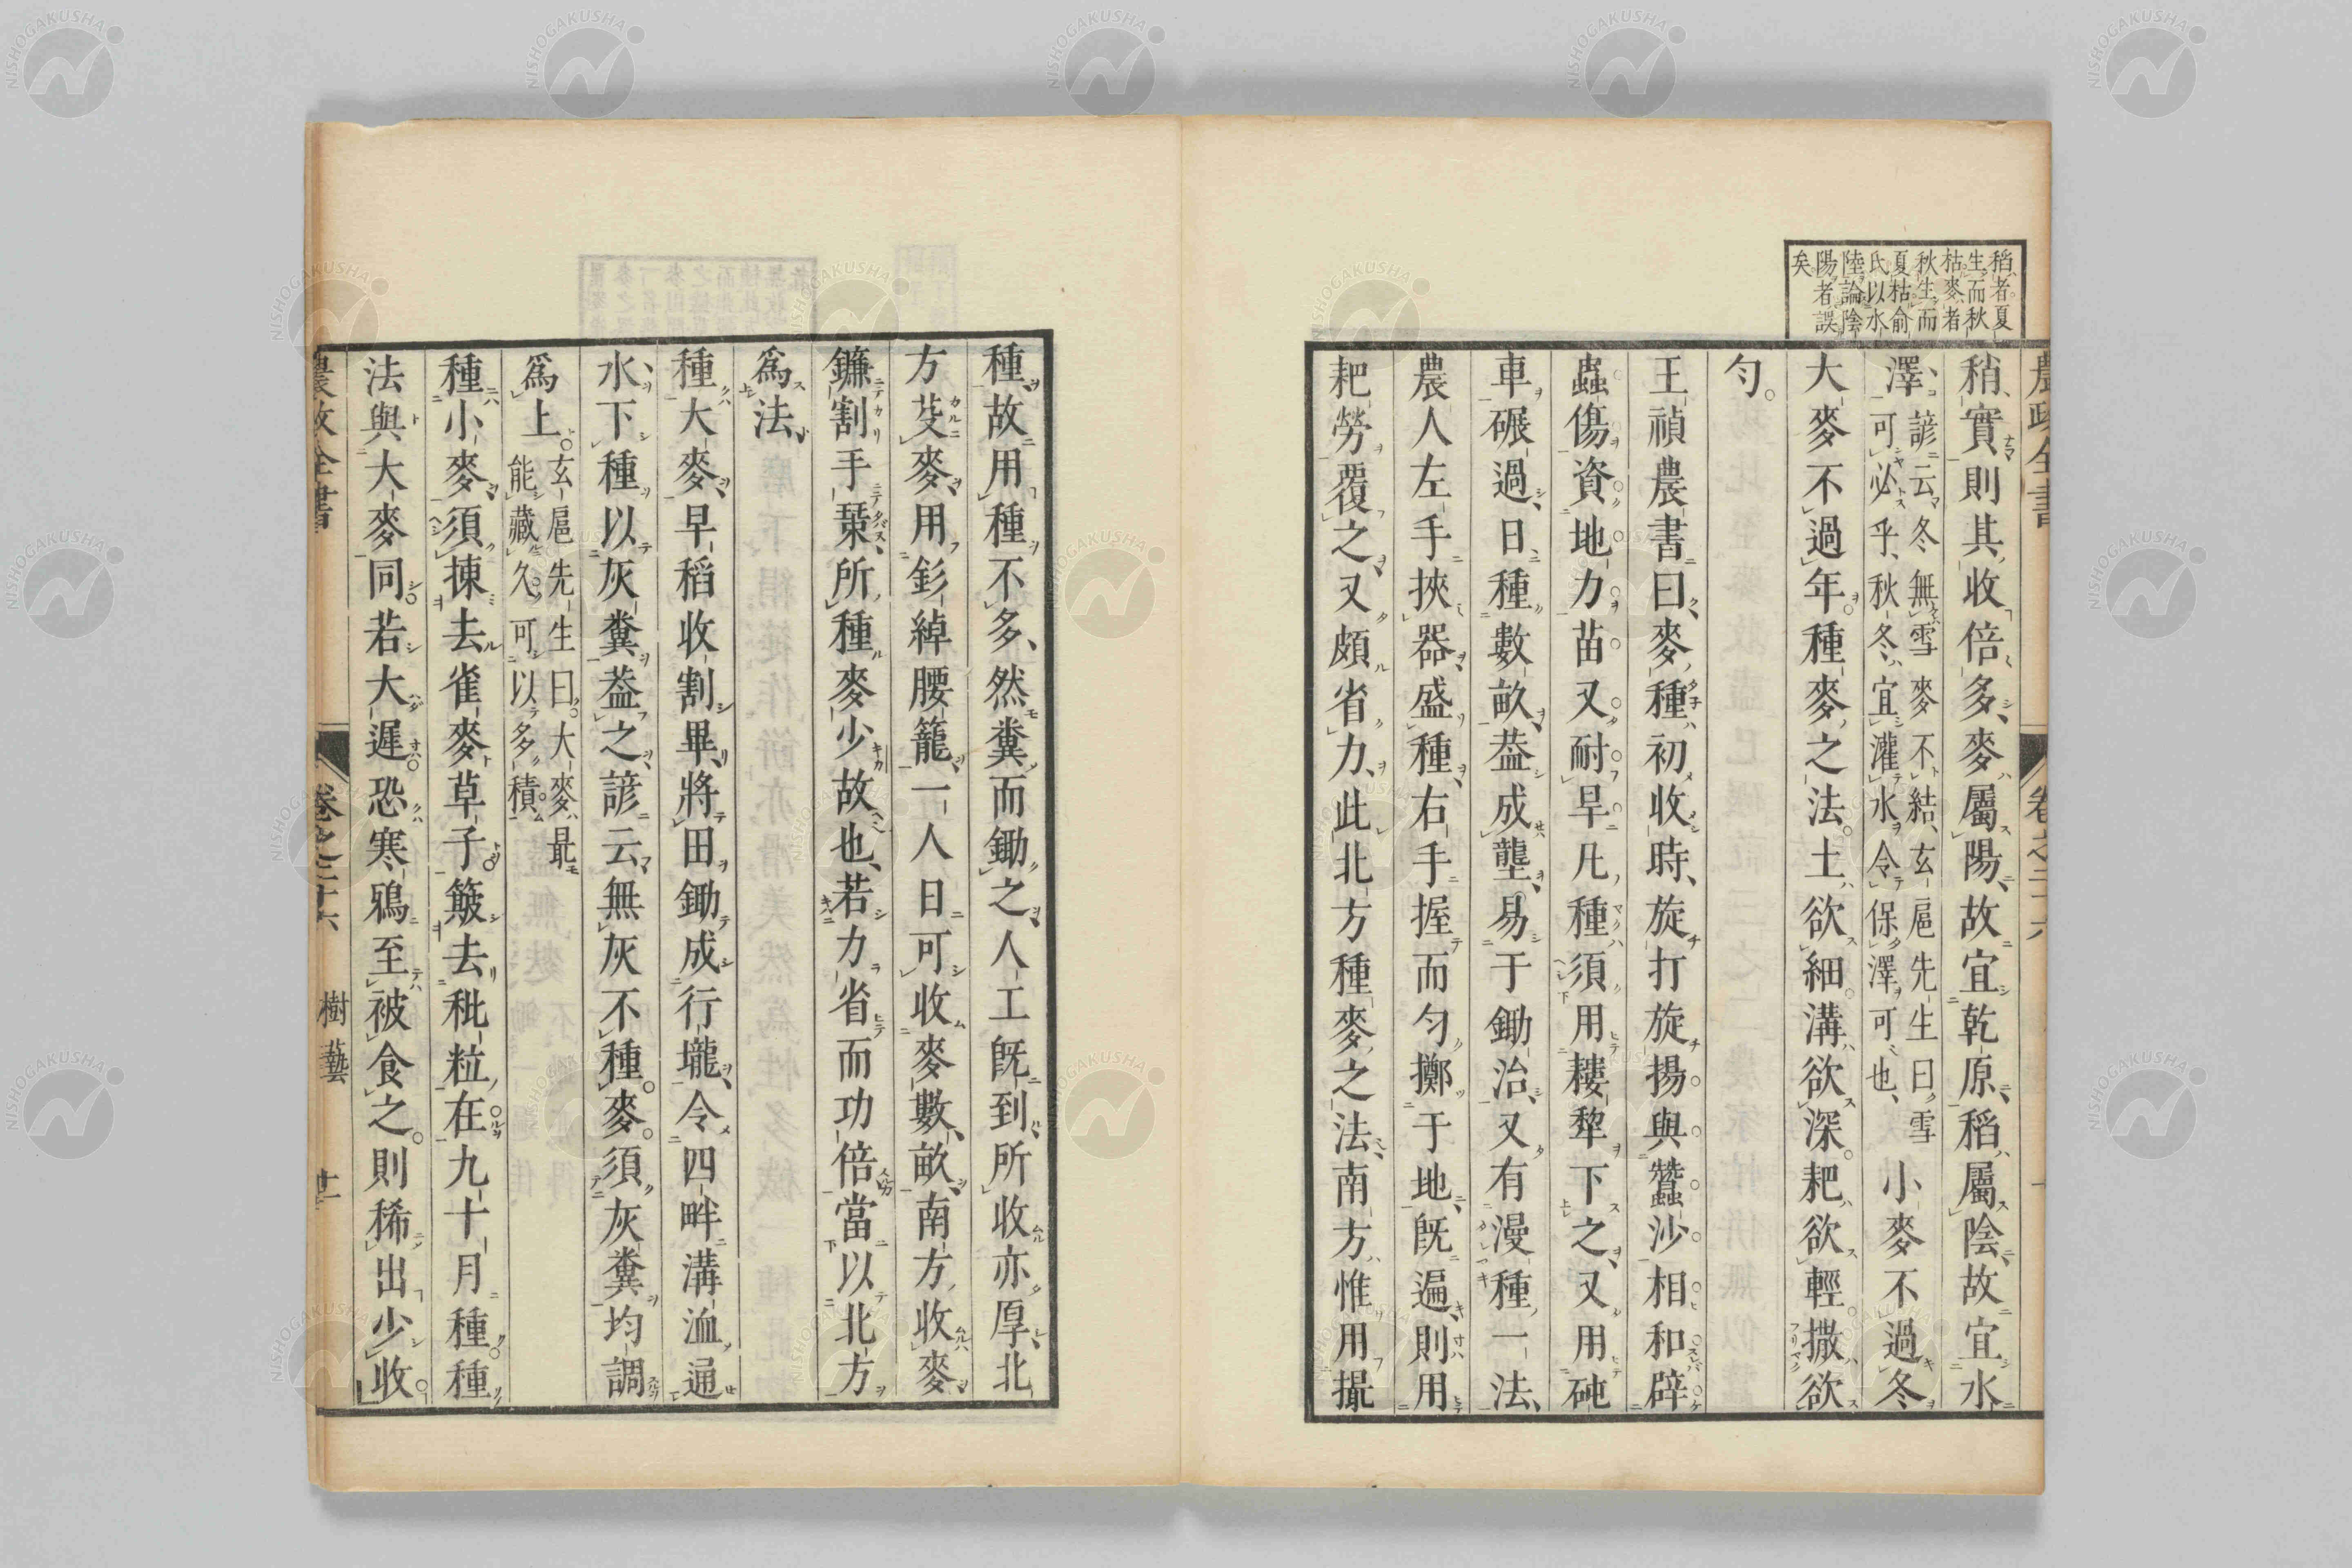 稻者夏
生而秋
枯麥者
秋生而
夏枯俞
氏以水
陸論陰
陽者誤
矣
稍實則其收倍多麥屬陽故宜乾原稻屬陰故宜水
澤諺云冬無雪麥不結玄扈先生曰雪
可必乎秋冬宜灌水令保澤可也小麥不過冬
大麥不過年種麥之法土欲細溝欲深耙欲輕撒欲
勻
王禎農書曰麥種初收時旋打旋揚與蠶沙相和辟
蟲傷資地力苗又耐旱凡種須用耬犂下之又用砘
車碾過日種數畝葢成壟易于鋤治又有漫種一法
農人左手挾器盛種右手握而勻擲于地既遍則用
耙勞覆之又頗省力此北方種麥之法南方惟用撮
種故用種不多然糞而鋤之人工既到所收亦厚北
方芟麥用釤綽腰籠一人日可收麥數畝南方收麥
鐮割手槩所種麥少故也若力省而功倍當以北方
爲法
種大麥早稻收割畢將田鋤成行壠令四畔溝洫通
水下種以灰糞葢之諺云無灰不種麥須灰糞均調
爲上玄扈先生曰大麥最
能藏久可以多積
種小麥須揀去雀麥草子簸去秕粒在九十月種種
法與大麥同若大遲恐寒鴉至被食之則稀出少收
農政全書 卷之二十六 樹藝 十一
NISHOGAKUSHA